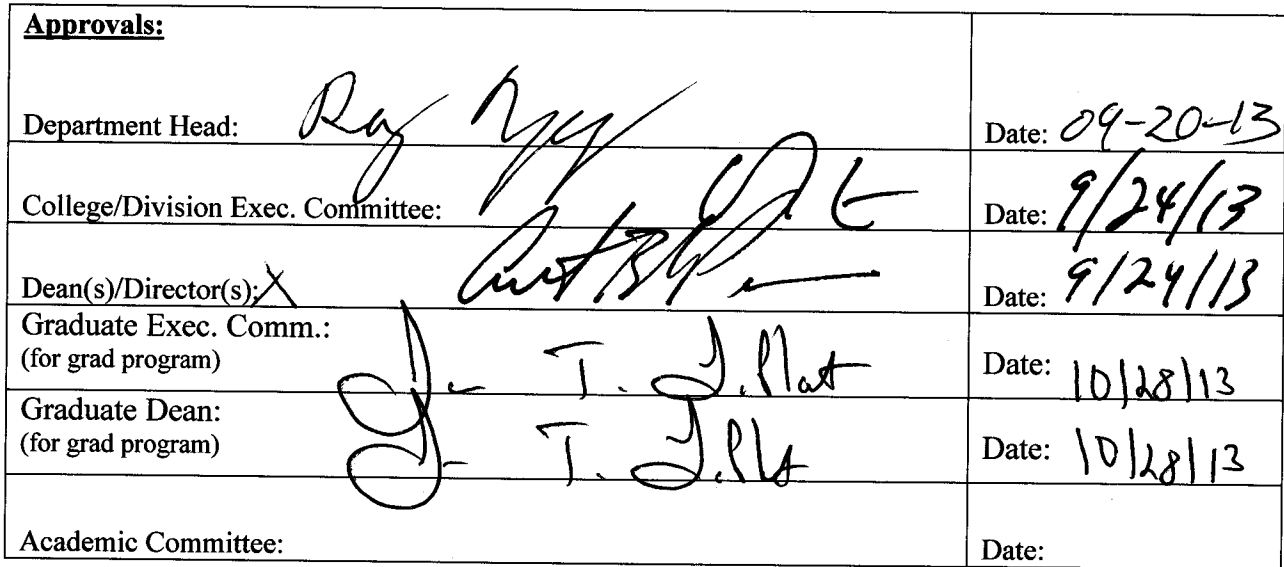 Approvals:
Department Head: Date: 09-20-13
College/Division Exec. Committee: Date: 9/24/13
Dean(s)/Director(s): X Date: 9/24/13
Graduate Exec. Comm.:
(for grad program) Date: 10/28/13
Graduate Dean:
(for grad program) Date: 10/28/13
Academic Committee: Date: